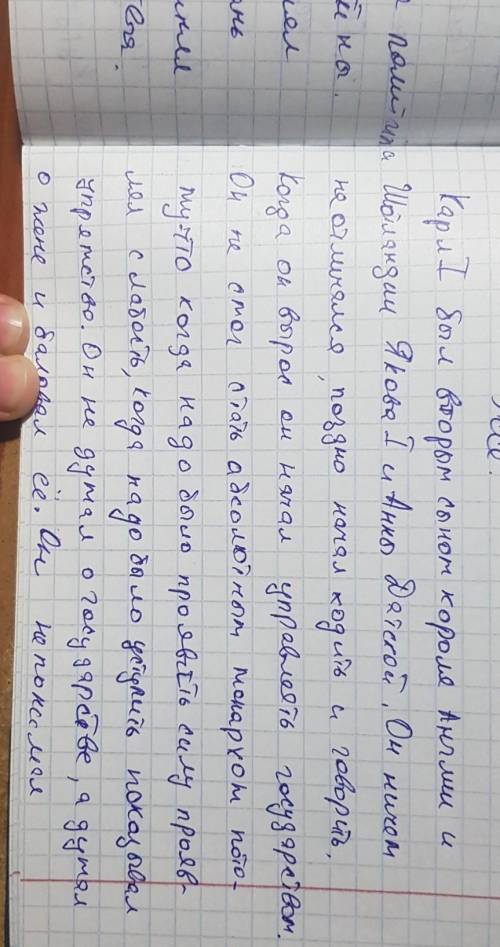 Карл I был вторым сыном короля Англии и
Шотландии Якова I и Анны Датской. Он ничем
не отличался, поздно начал ходить и говорить.
Когда он вырос он начал управлять государством.
Он не смог стать абсолютным монархом пото-
му-что когда надо было проявить силу прояв-
лял слабость, когда надо было уступить показывал
упрямство. Он не думал о государстве, а думал
о жене и баловал её. Он не понимал